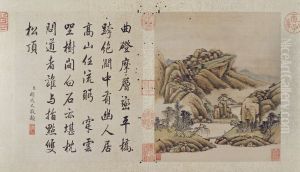 曲磴摩層巒平橋
跨絕澗中有幽人居
高山任流眄寒雲
埜樹間白石亦堪枕
問道者誰與指點雙
松頂